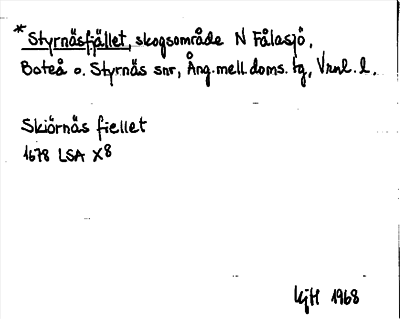 * Styrnäsfjället, skogsområde N Fålasjö,
Boteå o. Styrnäs snr, Ång. mell. doms. tg, Vrnl. l.
Skiörnäs fiellet
1678 LSA X8
KjH 1968